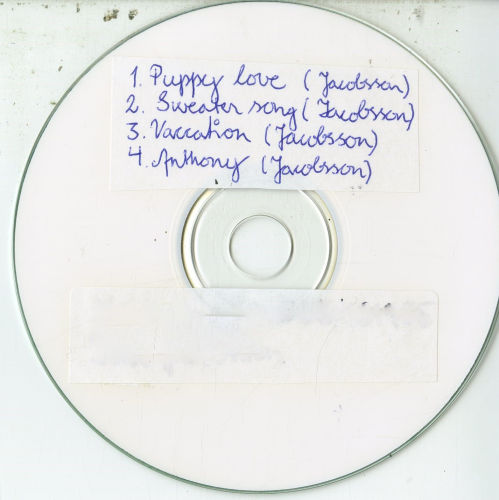 1. Puppy love (Jacobsson)
2. Sweater song (Jacobsson)
3. Vaccation (Jacobsson)
4. Anthony (Jacobsson)